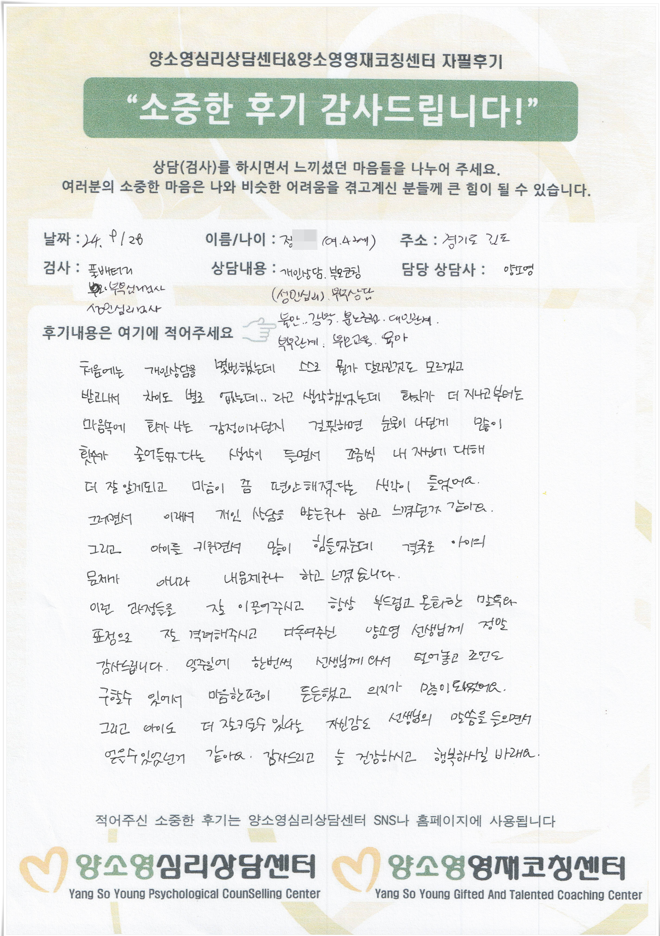 양소영심리상담센터&양소영영재코칭센터 자필후기
“소중한 후기 감사드립니다!”
상담(검사)를 하시면서 느끼셨던 마음들을 나누어 주세요.
여러분의 소중한 마음은 나와 비슷한 어려움을 겪고계신 분들께 큰 힘이 될 수 있습니다.
날짜 : 24. 8/28 이름/나이 : 정 (여.43세) 주소 : 경기도 김포
검사 : 풀배터리 상담내용 : 개인상담. 부모코칭 담당 상담사 : 양소영
부부심리검사 (성인심리) 부부상담
성인심리검사
후기내용은 여기에 적어주세요 불안.. 강박. 분노조절. 대인관계.
부부관계. 부모교육. 육아
처음에는 개인상담을 몇번했는데 스스로 뭘가 달라진것도 모르겠고
받고나서 차이도 별로 없는데.. 라고 생각했었는데 회차가 더 지나고부터는
마음속에 화가 나는 감정이나던지 걸핏하면 눈물이 나던게 많이
횟수가 줄어들었다는 생각이 들면서 조금씩 내 자신에 대해
더 잘 알게되고 마음이 좀 편안해졌다는 생각이 들었어요.
그러면서 이래서 개인 상담을 받는구나 하고 느꼈던거 같아요.
그리고 아이를 키우면서 많이 힘들었는데 결국은 아이의
문제가 아니라 내문제구나 하고 느꼈습니다.
이런 과정들을 잘 이끌어주시고 항상 부드럽고 온화한 말투와
표정으로 잘 격려해주시고 다독여주신 양소영 선생님께 정말
감사드립니다. 일주일에 한번씩 선생님께 와서 털어놓고 조언도
구할수 있어서 마음한편이 든든했고 의지가 많이되었어요.
그리고 아이도 더 잘키울수 있다는 자신감도 선생님의 말씀을 들으면서
얻을수있었던거 같아요. 감사드리고 늘 건강하시고 행복하시길 바래요.
적어주신 소중한 후기는 양소영심리상담센터 SNS나 홈페이지에 사용됩니다
양소영심리상담센터 양소영영재코칭센터
Yang So Young Psychological CounSelling Center Yang So Young Gifted And Talented Coaching Center